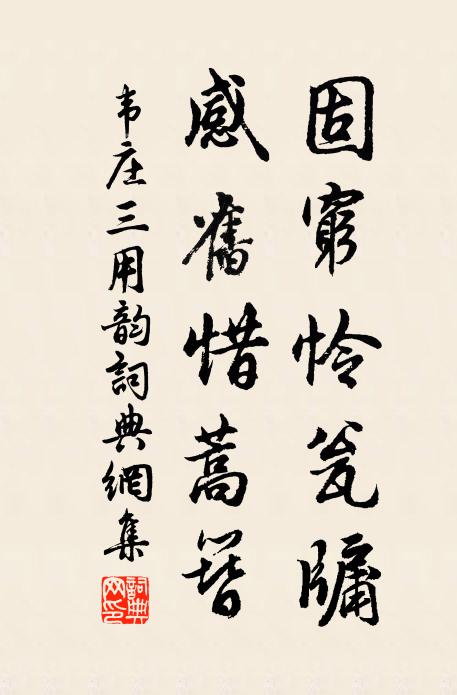 固窮怜瓮牖
感舊惜蒿簪
韦庄三用韵詞典網集
詞典網印